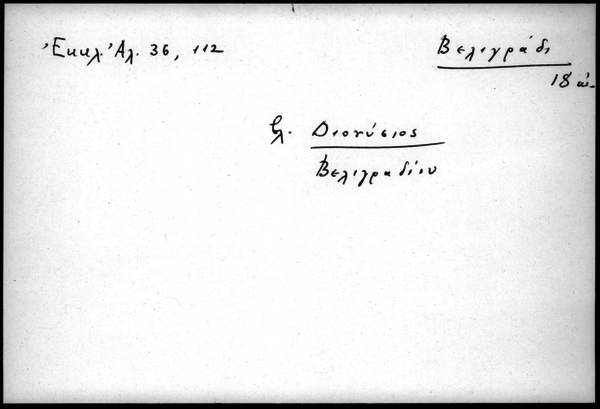 Ἐκκλ. Ἀλ. 36, 112
Βελιγράδι
18 αἰ.
βλ. Διονύσιος
Βελιγραδίου